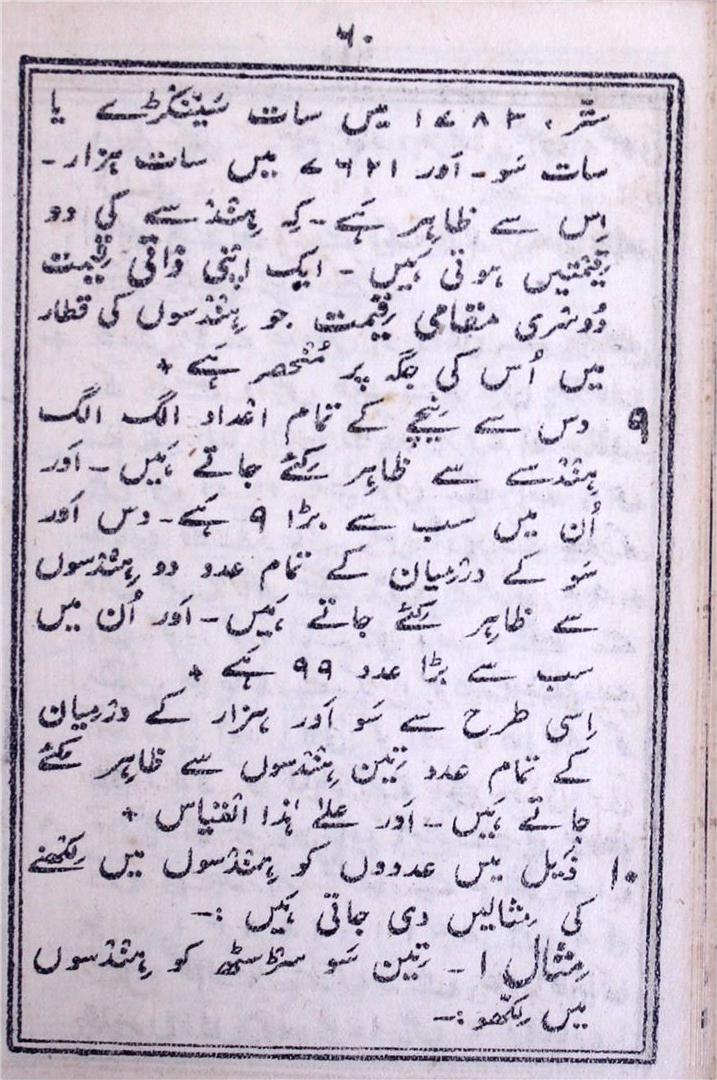 ۶۰
ستّر ، ۱۷۸۳ میں سات سَینْکڑے یا
سات سَو ۔ اَور ۷۶۲۱ میں سات ہزار ۔
اِس سے ظاہِر ہَے ۔ کِہ ہِنْدْسے کی دو
قِیمْتیں ہوتی ہَیں ۔ ایک اپنی ذاتی قِیمت
دُوسْری مقامی قِیمت جو ہِنْدْسوں کی قطار
میں اُس کی جگہ پر مُنْحصر ہَے +
۹ دس سے نِیچے کے تمام اعْداد الگ الگ
ہِنْدْسے سے ظاہِر کِئے جاتے ہَیں ۔ اَور
اُن میں سب سے بڑا ۹ ہَے ۔ دس اَور
سَو کے درْمیان کے تمام عدد دو ہِنْدْسوں
سے ظاہِر کِئے جاتے ہَیں ۔ اَور اُن میں
سب سے بڑا عدد ۹۹ ہَے +
اِسی طرح سے سَو اَور ہزار کے درْمیان
کے تمام عدد تِین ہِنْدْسوں سے ظاہِر کِئے
جاتے ہَیں ۔ اَور علےٰ ہٰذا الْقیاس +
۱۰ ذَیل میں عددوں کو ہِنْدْسوں میں لِکھْنے
کی مِثالیں دی جاتی ہَیں :۔
مِثال ۱ ۔ تِین سَو سڑسٹھ کو ہِنْدْسوں
میں لِکھّو :۔